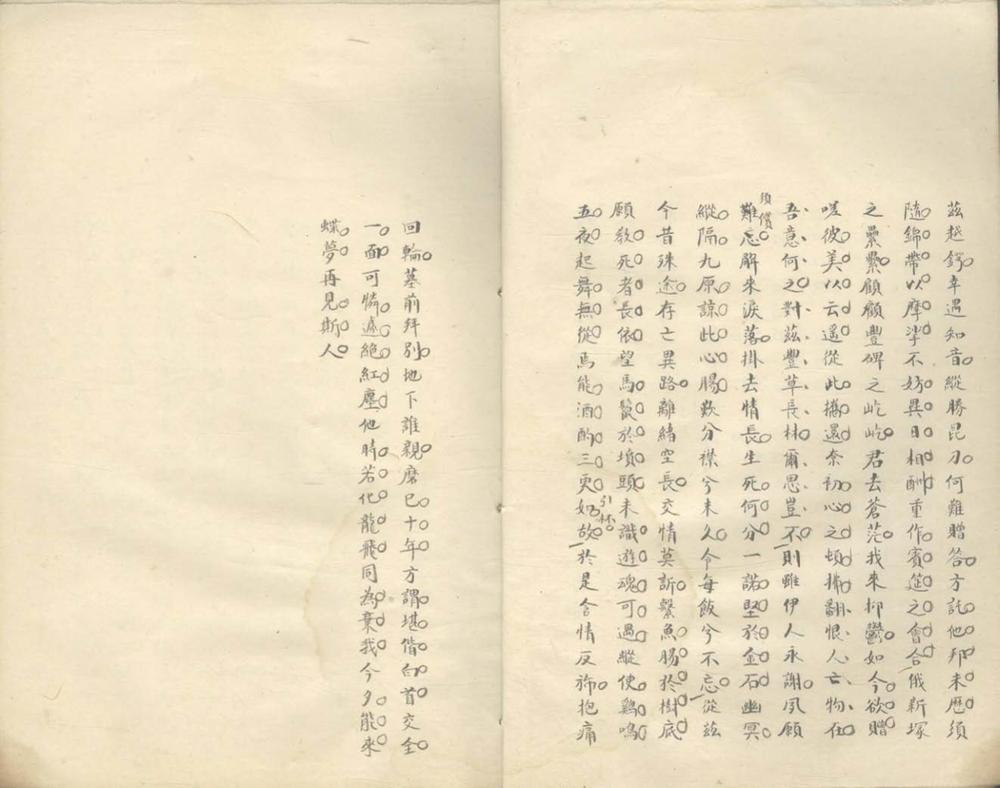 茲越鍔幸遇知音縱勝昆刀何難贈答方託他邦未歷須
隨錦帶以摩挲不妨異日相酬重作賓筵之會合俄新塚
之纍纍顧顧豐碑之屹屹君去蒼茫我來抑鬱如今欲贈
嗟彼美以云遥從此攜還奈初心之頓拂翻恨人亡物在
吾意何之對茲豐草長林爾思豈不則雖伊人永謝夙願
須償
難忘解來淚落掛去情長生死何分一諾堅於金石幽冥
縱隔九原諒此心腸嘆分襟兮未久今每飯兮不忘從茲
今昔殊途存亡異路離緒空長交情莫訴繫魚腸於樹底
願教死者長依望馬鬣於墳頭未識遊魂可遇縱使鷄鳴
五夜起舞無從焉能酒酌三更如故於是含情反旆抱痛
引杯
回輪墓前拜別地下誰親磨已十年方謂堪偕白首交全
一面可憐遽絕紅塵他時若化龍飛同為棄我今夕能來
蝶夢再見斯人